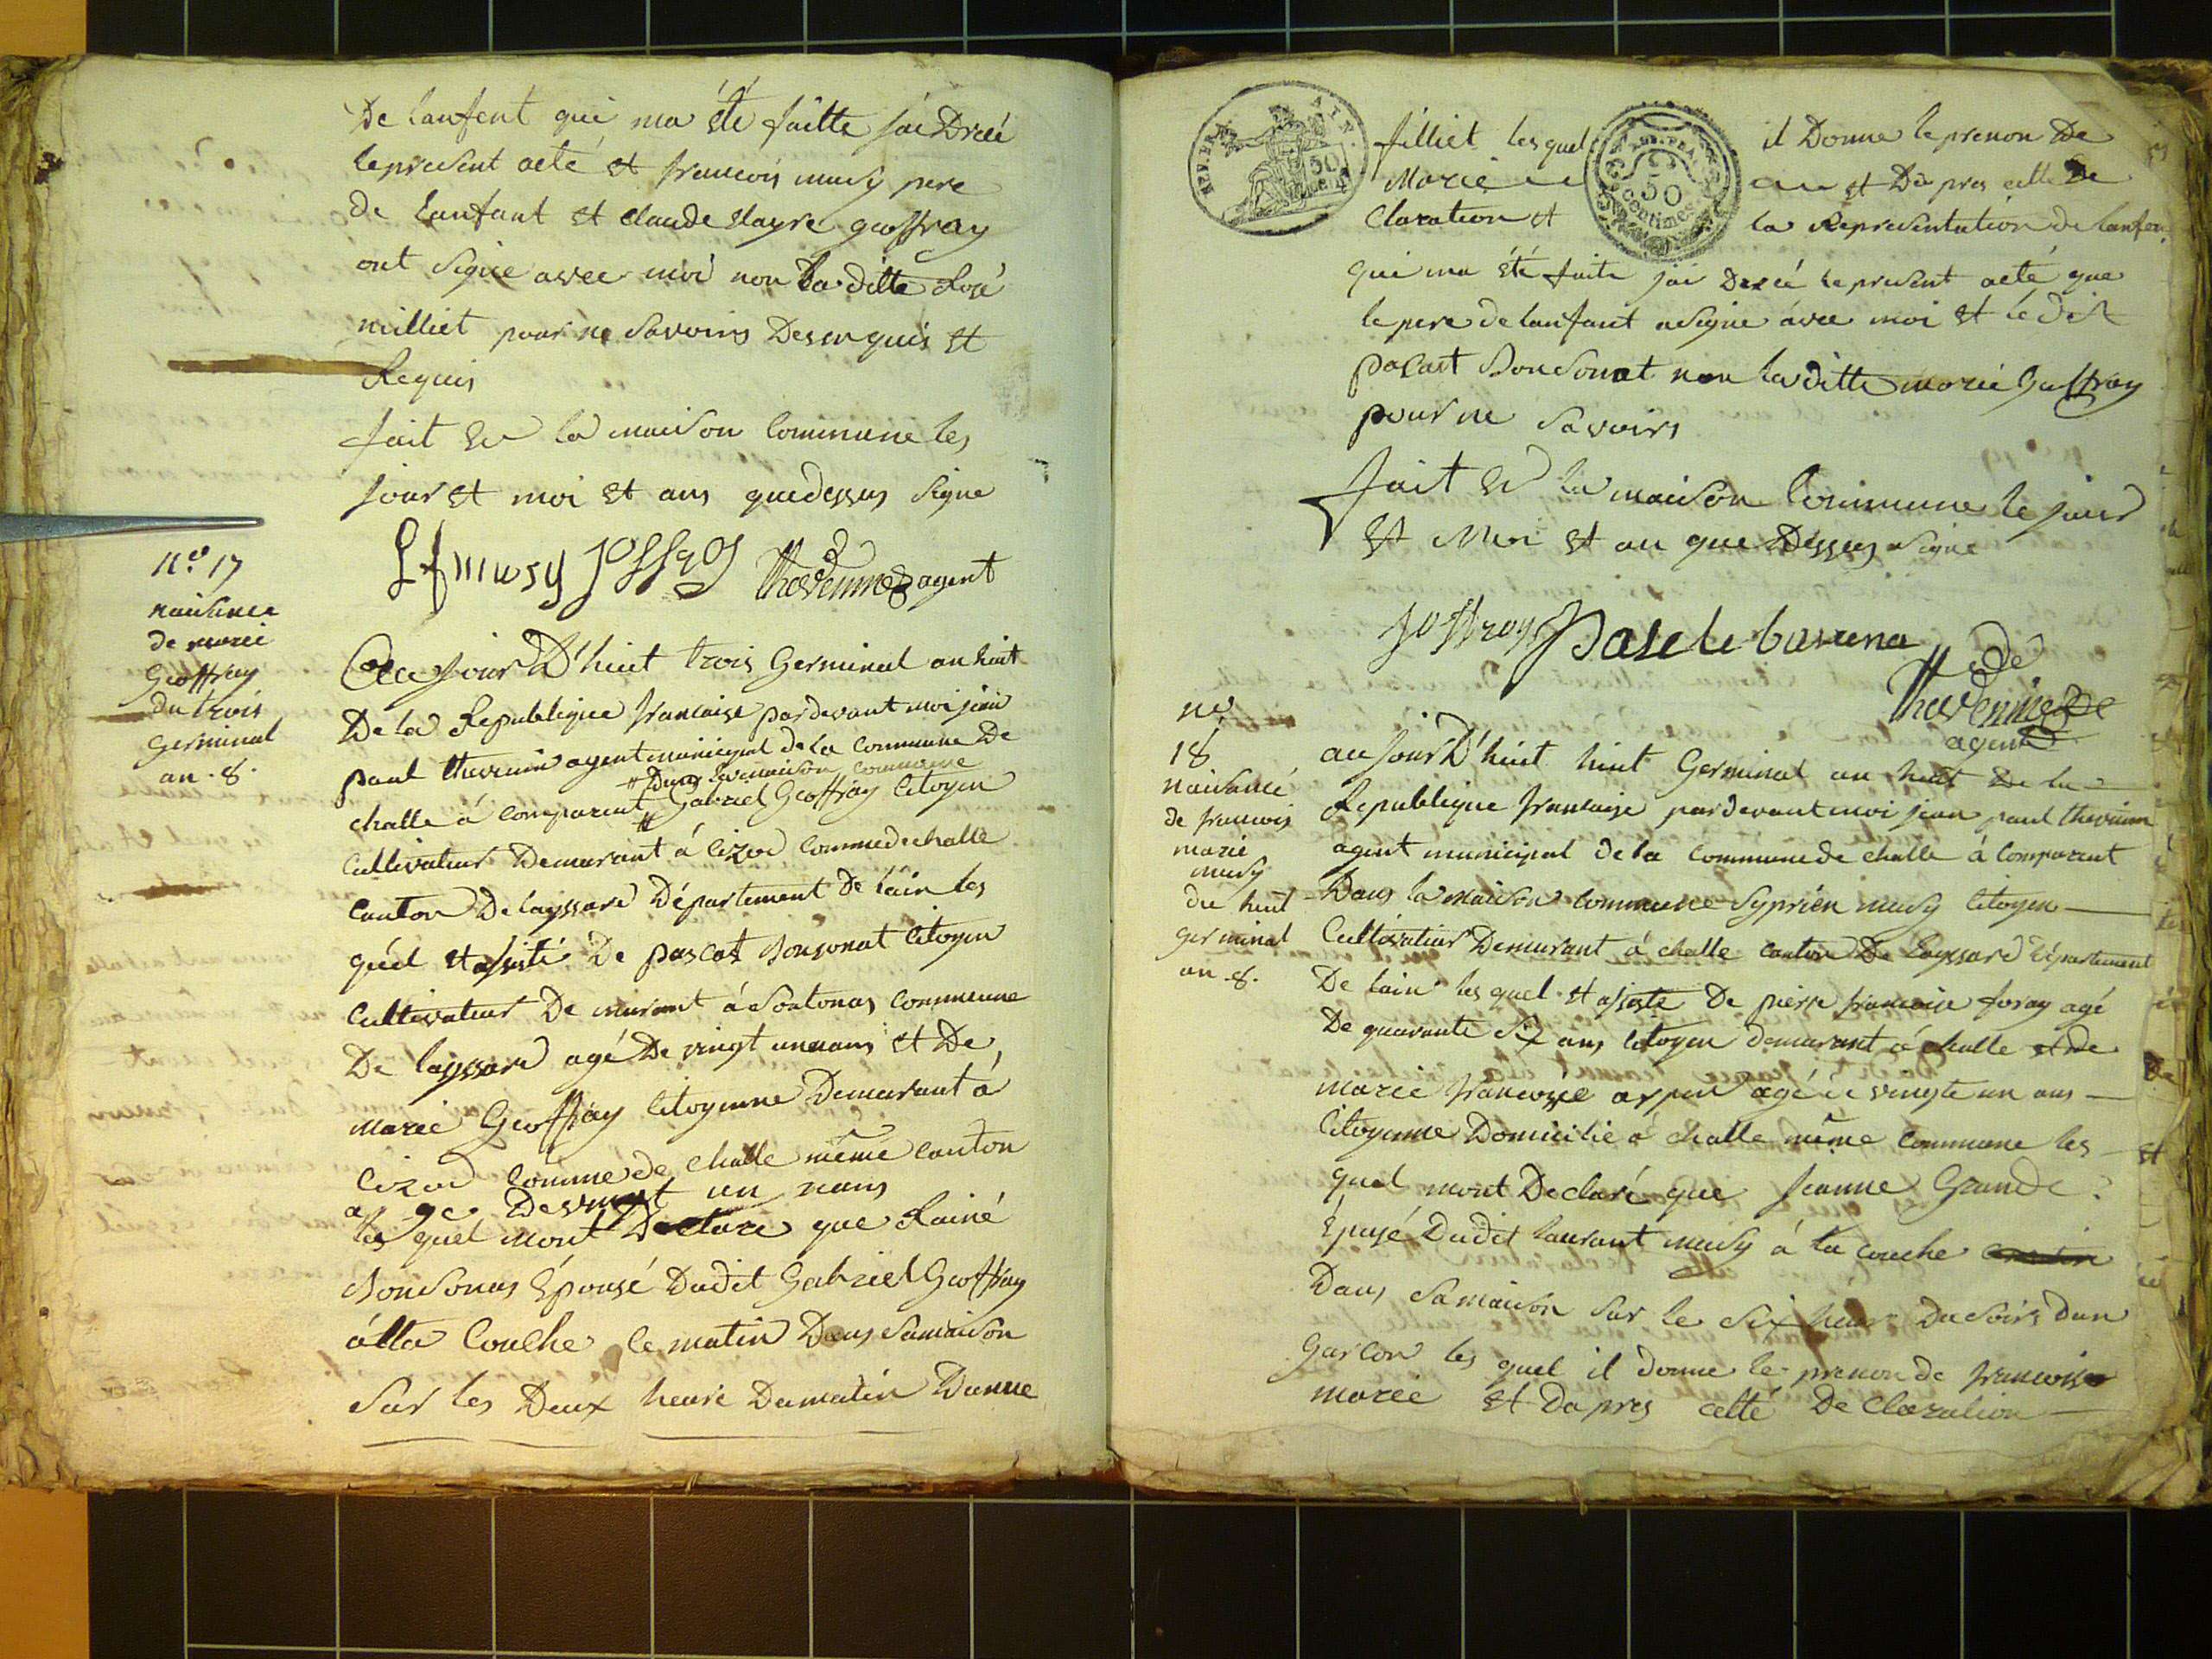 De lanfent qui ma été faitte jai Dréé
le present acté et francois musy pere
de lanfant et claude Mayre geoffray
ont signe avec moi non la ditte Rosé
milliet pour ne savoirs Desen quis et
Requis
fait En la maison Commune les
jour et moi et ans que dessus signe
agent
n.o 17
naisance
de marie
Geoffray
du trois
Germinal
an .8.
jour D'huit trois Germinal an huit
De la Republique francaise par devant moi jean
paul thevenin agent municipal de la Commune De
Dans la maison commune
challe á comparent Gabriel Geoffray Citoyen
Cultivateur Demurant á Cizod Commede challe
Canton De layssard Département De lain les
quel et asisté De pascat bonsonat Citoyen
Cultivateur De murant á Sontonas Commune
De layssard agé De vingt un ans et De
marie Geoffray Citoyenne Demurant á
Cizod Comme de challe même Canton
a ge De vingt un nans
les quel mont Declare que Rainé
bonsonas Épousé Dudit Gabriel Geoffray
álla Couche le matin Dans samaison
Sur les Deux heure Dumatin Dunne
REP. FRA. AIN.
50
filliet les quel il Donne le prenon De
ADM. FRA.
50
centimes
Marie et Da pres cette De
Claration et la Representation de lanfen
qui ma été faite jai Dréé le present acté que
le pere de lanfant a signe ávec moi et le dit
pascat bonsonat non la ditte marie Geoffray
pour ne savoirs
fait En la maison Commune le jour
et Moi et an que Dessus signe
agent
no
18
naisancé
de francois
marie
musy
du huit
germinal
an .8.
au jour D'huit huit Germinal an huit De la
Republique francaise par devant moi jean paul thevenin
agent municipal de la commune de challe á Comparent
Dans la maison commune Syprien musy Citoyen
Cultivateur Demurant á challe canton De layssard département
De lain les quel et asisté De pierre francoise foray agé
De quarante six ans citoyen demurant á challe et de
marie francoise agé de vingte un ans
Citoyenne Domicilié á challe même commune les
quel mont Declaré que Jeanne Grande
Épusé Dudit laurant musy á la couche
Dans samaison sur le six heur Du soirs dun
Garcon les quel il donne le prenon de francoise
marie et Da pres cetté De Claration